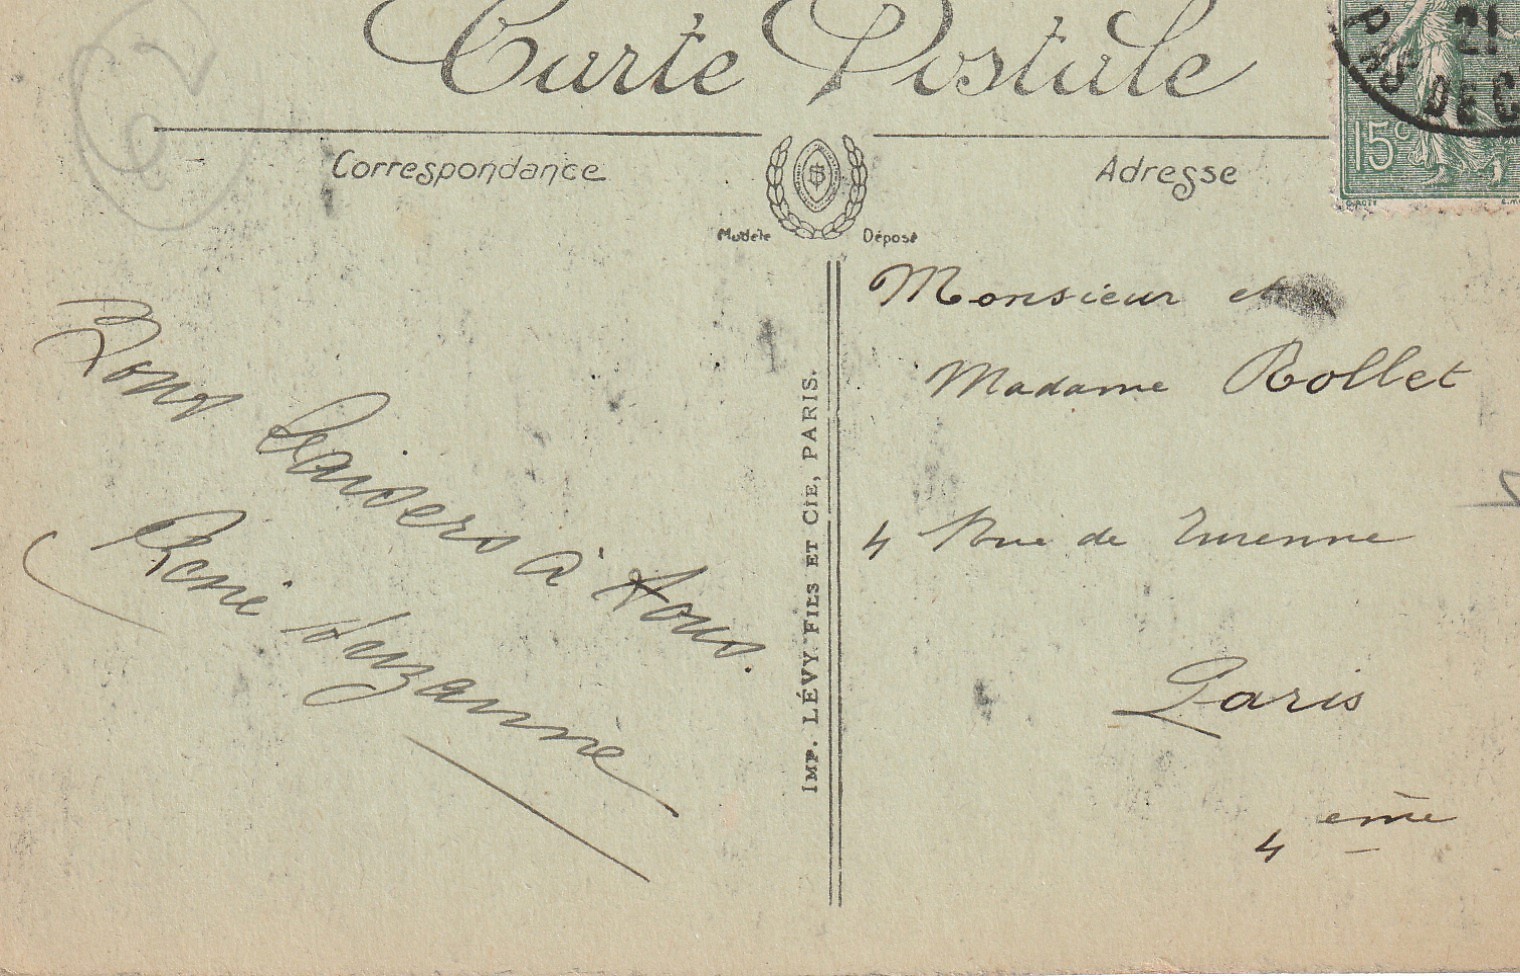 Carte Postale
Correspondance
Adresse
Modèle Déposé
15c
21
DÉC
Bons baisers à tous.
René Suzanne
IMP. LÉVY FILS ET CIE, PARIS.
Monsieur et
Madame Rollet
4 Rue de Turenne
Paris
4 ème